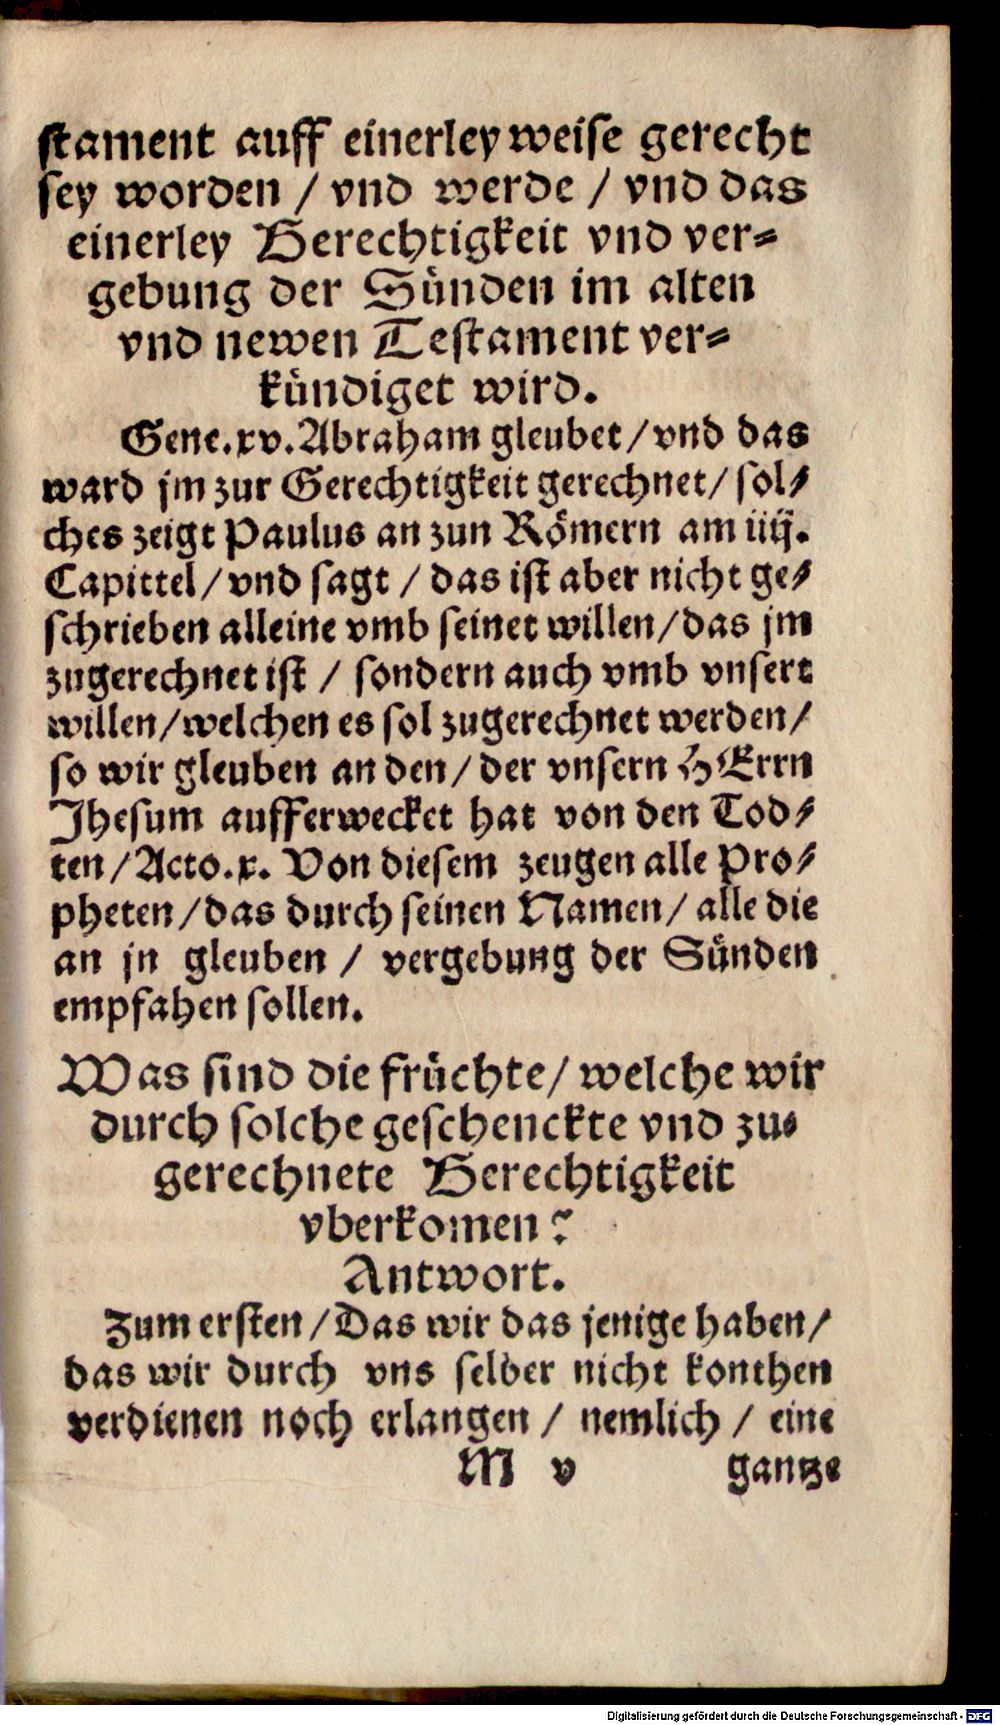 stament auff einerley weise gerecht
sey worden / vnd werde / vnd das
einerley Gerechtigkeit vnd ver-
gebung der Sünden im alten
vnd newen Testament ver-
kündiget wird.
Gene.xv. Abraham gleubet / vnd das
ward jm zur Gerechtigkeit gerechnet / sol-
ches zeigt Paulus an zun Römern am iiij.
Capittel / vnd sagt / das ist aber nicht ge-
schrieben alleine vmb seinet willen / das jm
zugerechnet ist / sondern auch vmb vnsert
willen / welchen es sol zugerechnet werden /
so wir gleuben an den / der vnsern HErrn
Jhesum aufferwecket hat von den Tod-
ten / Acto.x. Von diesem zeugen alle Pro-
pheten / das durch seinen Namen / alle die
an jn gleuben / vergebung der Sünden
empfahen sollen.
Was sind die früchte / welche wir
durch solche geschenckte vnd zu-
gerechnete Gerechtigkeit
vberkomen?
Antwort.
Zum ersten / Das wir das jenige haben /
das wir durch vns selber nicht konthen
verdienen noch erlangen / nemlich / eine
M v gantze
Digitalisierung gefördert durch die Deutsche Forschungsgemeinschaft - DFG